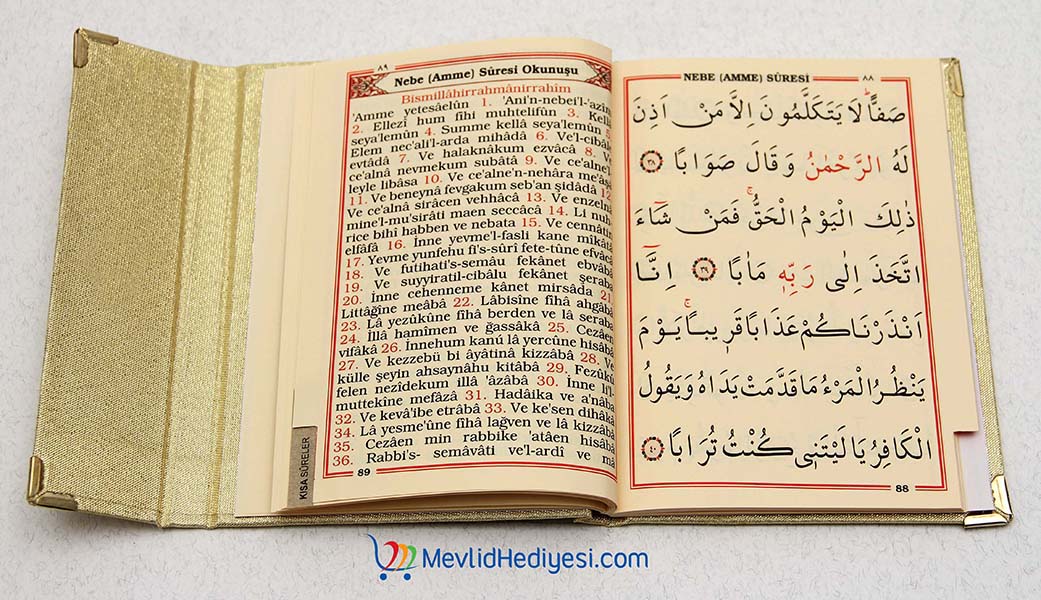 NEBE (AMME) SÛRESİ
٨٨
صَفًّاۜ لَا يَتَكَلَّمُونَ اِلَّا مَنْ اَذِنَ
لَهُ الرَّحْمٰنُ وَقَالَ صَوَابًا ٣٨
ذٰلِكَ الْيَوْمُ الْحَقُّۚ فَمَنْ شَٓاءَ
اتَّخَذَ اِلٰى رَبِّه۪ مَاٰبًا ٣٩ اِنَّٓا
اَنْذَرْنَاكُمْ عَذَابًا قَر۪يبًاۚ يَوْمَ
يَنْظُرُ الْمَرْءُ مَا قَدَّمَتْ يَدَاهُ وَيَقُولُ
الْكَافِرُ يَا لَيْتَن۪ي كُنْتُ تُرَابًا ٤٠
88
٨٩
Nebe (Amme) Sûresi Okunuşu
Bismillâhirrahmânirrahîm
'Amme yetesâelûn 1. 'Ani'n-nebei'l-'azîm
2. Ellezî hum fîhi muhtelifûn 3. Kellâ
seya'lemûn 4. Summe kellâ seya'lemûn 5.
Elem nec'ali'l-arda mihâdâ 6. Ve'l-cibâle
evtâdâ 7. Ve halaknâkum ezvâcâ 8. Ve
ce'alnâ nevmekum subâtâ 9. Ve ce'alne'l-
leyle libâsa 10. Ve ce'alne'n-nehâra me'âşâ
11. Ve beneynâ fevgakum seb'an şidâdâ 12.
Ve ce'alnâ sirâcen vehhâcâ 13. Ve enzelnâ
mine'l-mu'sirâti maen seccâcâ 14. Li nuh-
rice bihî habben ve nebata 15. Ve cennâtin
elfâfâ 16. İnne yevme'l-fasli kane mîkâtâ
17. Yevme yunfehu fi's-sûrî fete-tûne efvâcâ
18. Ve futihati's-semâu fekânet ebvâbâ
19. Ve suyyiratil-cibâlu fekânet şeraba
20. İnne cehenneme kânet mirsâda 21.
Littâğîne meâbâ 22. Lâbisîne fîhâ ahgâbâ
23. Lâ yezûkûne fîhâ berden ve lâ seraba
24. İllâ hamîmen ve ğassâkâ 25. Cezâen
vifâkâ 26. İnnehum kanú lâ yercûne hisâbâ
27. Ve kezzebü bi âyâtinâ kizzâbâ 28. Ve
külle şeyin ahsaynâhu kitâbâ 29. Fezûkû
felen nezîdekum illâ 'âzâbâ 30. İnne li'l-
muttekîne mefâzâ 31. Hadâika ve a'nâba
32. Ve kevâ'ibe etrâbâ 33. Ve ke'sen dihâkâ
34. Lâ yesme'ûne fîhâ lağven ve lâ kizzâbâ
35. Cezâen min rabbike 'atâen hisâbâ
36. Rabbi's- semâvâti ve'l-ardî ve mâ
89
KISA SÛRELER
MevlidHediyesi.com